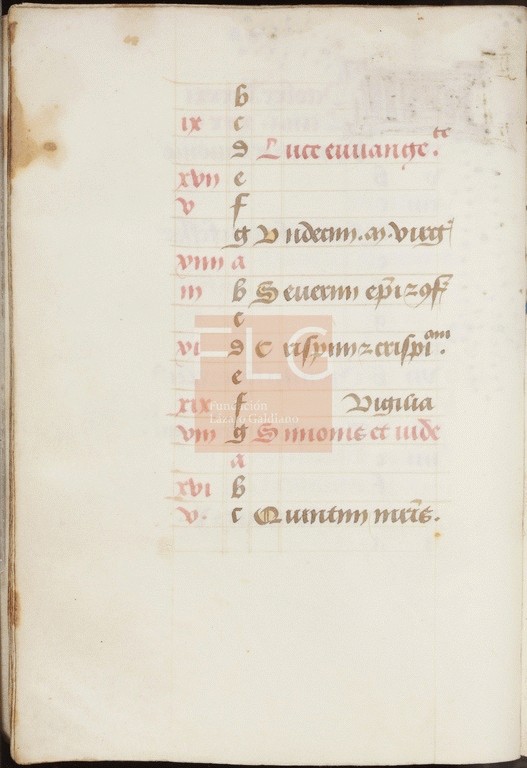 b
ix c
d Luce euuangeˡᵗᵉ.
xvii e
v f
g Undecim. m. virgˡ
xiiii a
iii b Severini ep̄i ⁊ ɔf
c
xi d Crispini ⁊ crispiᵃⁿⁱ.
e
xix f Vigilia
viii g Simonis et iude
a
xvi b
v. c Quintini mr̄is.
FLG
Fundación
Lázaro Galdiano